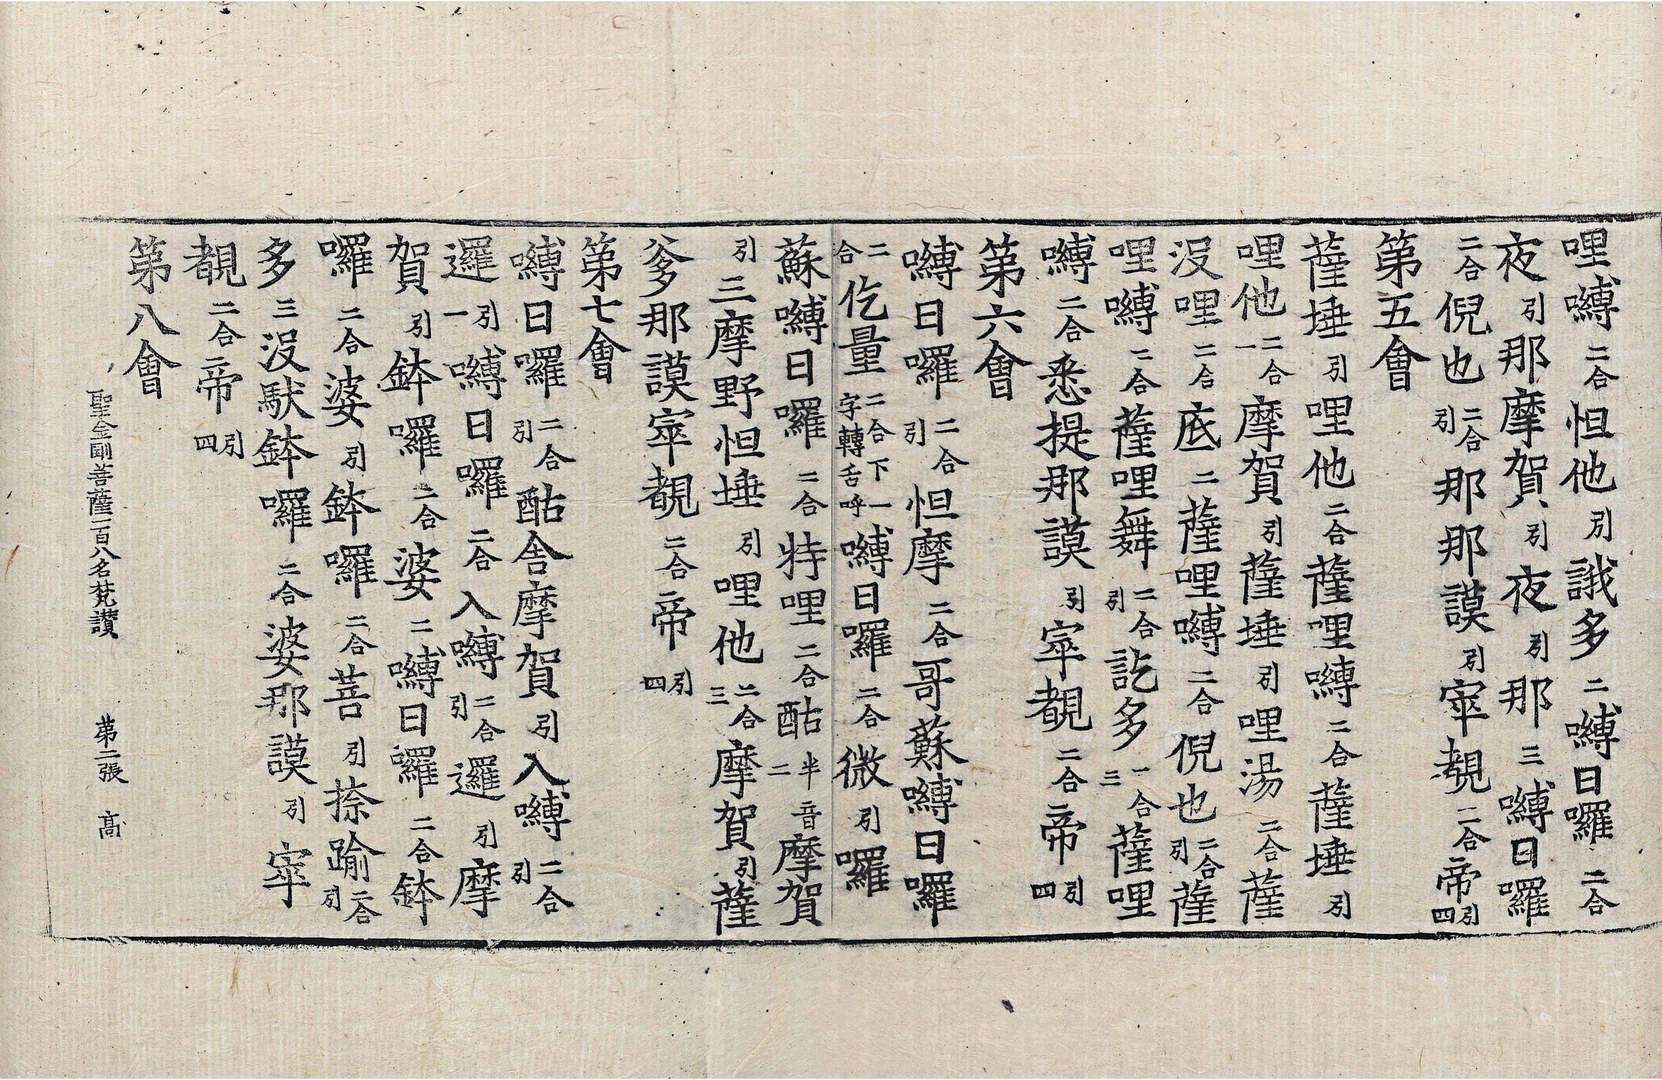 哩嚩二合怛他引誐多二嚩日囉二合
夜引那摩賀引夜引那三嚩日囉
二合倪也二合引那那謨引宰覩二合帝引四
第五會
薩埵引哩他二合薩哩嚩二合薩埵引
哩他二合一摩賀引薩埵引哩湯二合薩
沒哩二合底二薩哩嚩二合倪也二合引薩
哩嚩二合薩哩舞二合引訖多二合三薩哩
嚩二合悉提那謨引宰覩二合帝引四
第六會
嚩日囉二合引怛摩二合哥蘇嚩日囉
二合仡量二合下一字轉舌呼嚩日囉二合微引囉
蘇嚩日囉二合特哩二合酤半音二摩賀
引三摩野怛埵引哩他二合三摩賀引薩
爹那謨宰覩二合帝引四
第七會
嚩日囉二合引酤舍摩賀引入嚩二合引
邏引一嚩日囉二合入嚩二合引邏引摩
賀引鉢囉二合婆二嚩日囉二合鉢
囉二合婆引鉢囉二合菩引捺踰二合引
多三沒馱鉢囉二合婆那謨引宰
覩二合帝引四
第八會
聖金剛菩薩一百八名梵讚 第二張 高